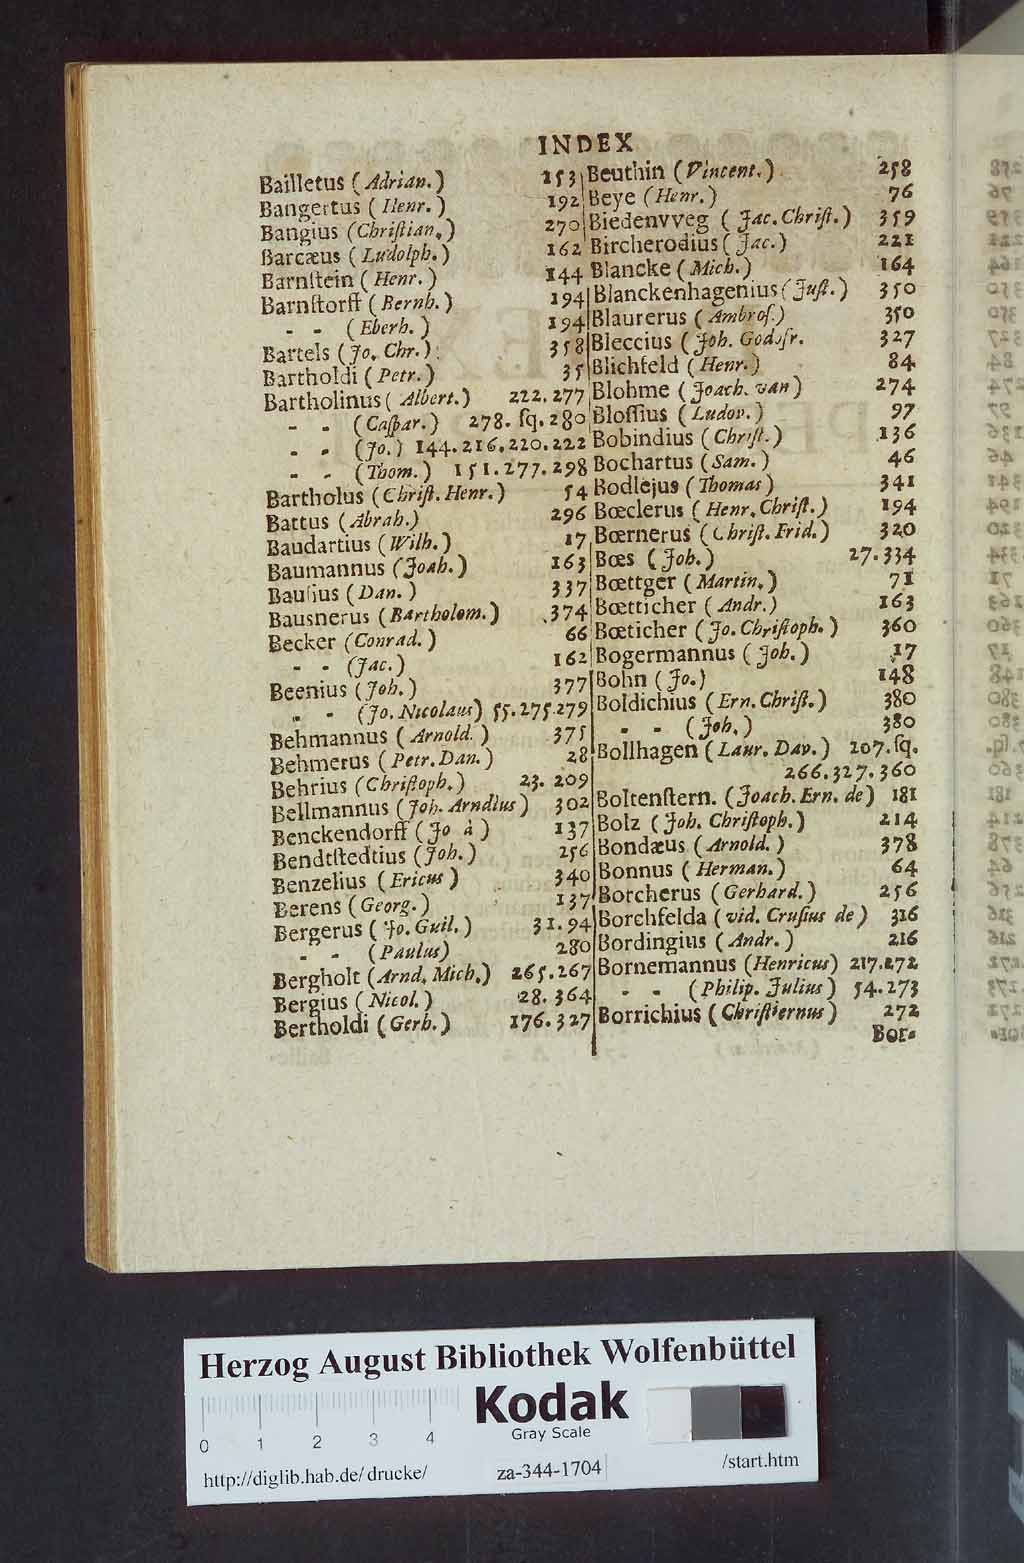 INDEX
Bailletus (Adrian.) 253
Bangertus (Henr.) 192
Bangius (Christian.) 270
Barcæus (Ludolph.) 162
Barnſtein (Henr.) 144
Barnſtorff (Bernh.) 194
- - (Eberh.) 194
Bartels (Jo. Chr.) 358
Bartholdi (Petr.) 35
Bartholinus (Albert.) 222.277
- - (Caſpar.) 278. ſq. 280
- - (Jo.) 144.216.220.222
- - (Thom.) 151.277.298
Bartholus (Chriſt. Henr.) 54
Battus (Abrah.) 296
Baudartius (Wilh.) 17
Baumannus (Joah.) 163
Bauſius (Dan.) 337
Bausnerus (Bartholom.) 374
Becker (Conrad.) 66
- - (Jac.) 162
Beenius (Joh.) 377
- - (Jo. Nicolaus) 55.275.279
Behmannus (Arnold.) 375
Behmerus (Petr. Dan.) 28
Behrius (Chriſtoph.) 23. 209
Bellmannus (Joh. Arndius) 302
Benckendorff (Jo à) 137
Bendtſtedtius (Joh.) 256
Benzelius (Ericus) 340
Berens (Georg.) 137
Bergerus (Jo. Guil.) 31.94
- - (Paulus) 280
Bergholt (Arnd. Mich.) 265.267
Bergius (Nicol.) 28. 364
Bertholdi (Gerh.) 176.327
Beuthin (Vincent.) 258
Beye (Henr.) 76
Biedenvveg (Jac. Chriſt.) 359
Bircherodius (Jac.) 221
Blancke (Mich.) 164
Blanckenhagenius (Juſt.) 350
Blaurerus (Ambroſ.) 350
Bleccius (Joh. Godofr. 327
Blichfeld (Henr.) 84
Blohme (Joach. van) 274
Bloſſius (Ludov.) 97
Bobindius (Chriſt.) 136
Bochartus (Sam.) 46
Bodlejus (Thomas) 341
Bœclerus (Henr. Chriſt.) 194
Bœrnerus (Chriſt. Frid.) 320
Bœs (Joh.) 27.334
Bœttger (Martin.) 71
Bœtticher (Andr.) 163
Bœticher (Jo. Chriſtoph.) 360
Bogermannus (Joh.) 17
Bohn (Jo.) 148
Boldichius (Ern. Chriſt.) 380
- - (Joh.) 380
Bollhagen (Laur. Dav.) 207. ſq.
266.327.360
Boltenſtern. (Joach. Ern. de) 181
Bolz (Joh. Chriſtoph.) 214
Bondæus (Arnold.) 378
Bonnus (Herman.) 64
Borcherus (Gerhard.) 256
Borchfelda (vid. Cruſius de) 316
Bordingius (Andr.) 216
Bornemannus (Henricus) 217.272
- - (Philip. Julius) 54.273
Borrichius (Chriſtiernus) 272
Bor-
Herzog August Bibliothek Wolfenbüttel
Kodak
Gray Scale
0 1 2 3 4
http://diglib.hab.de/drucke/ za-344-1704 /start.htm